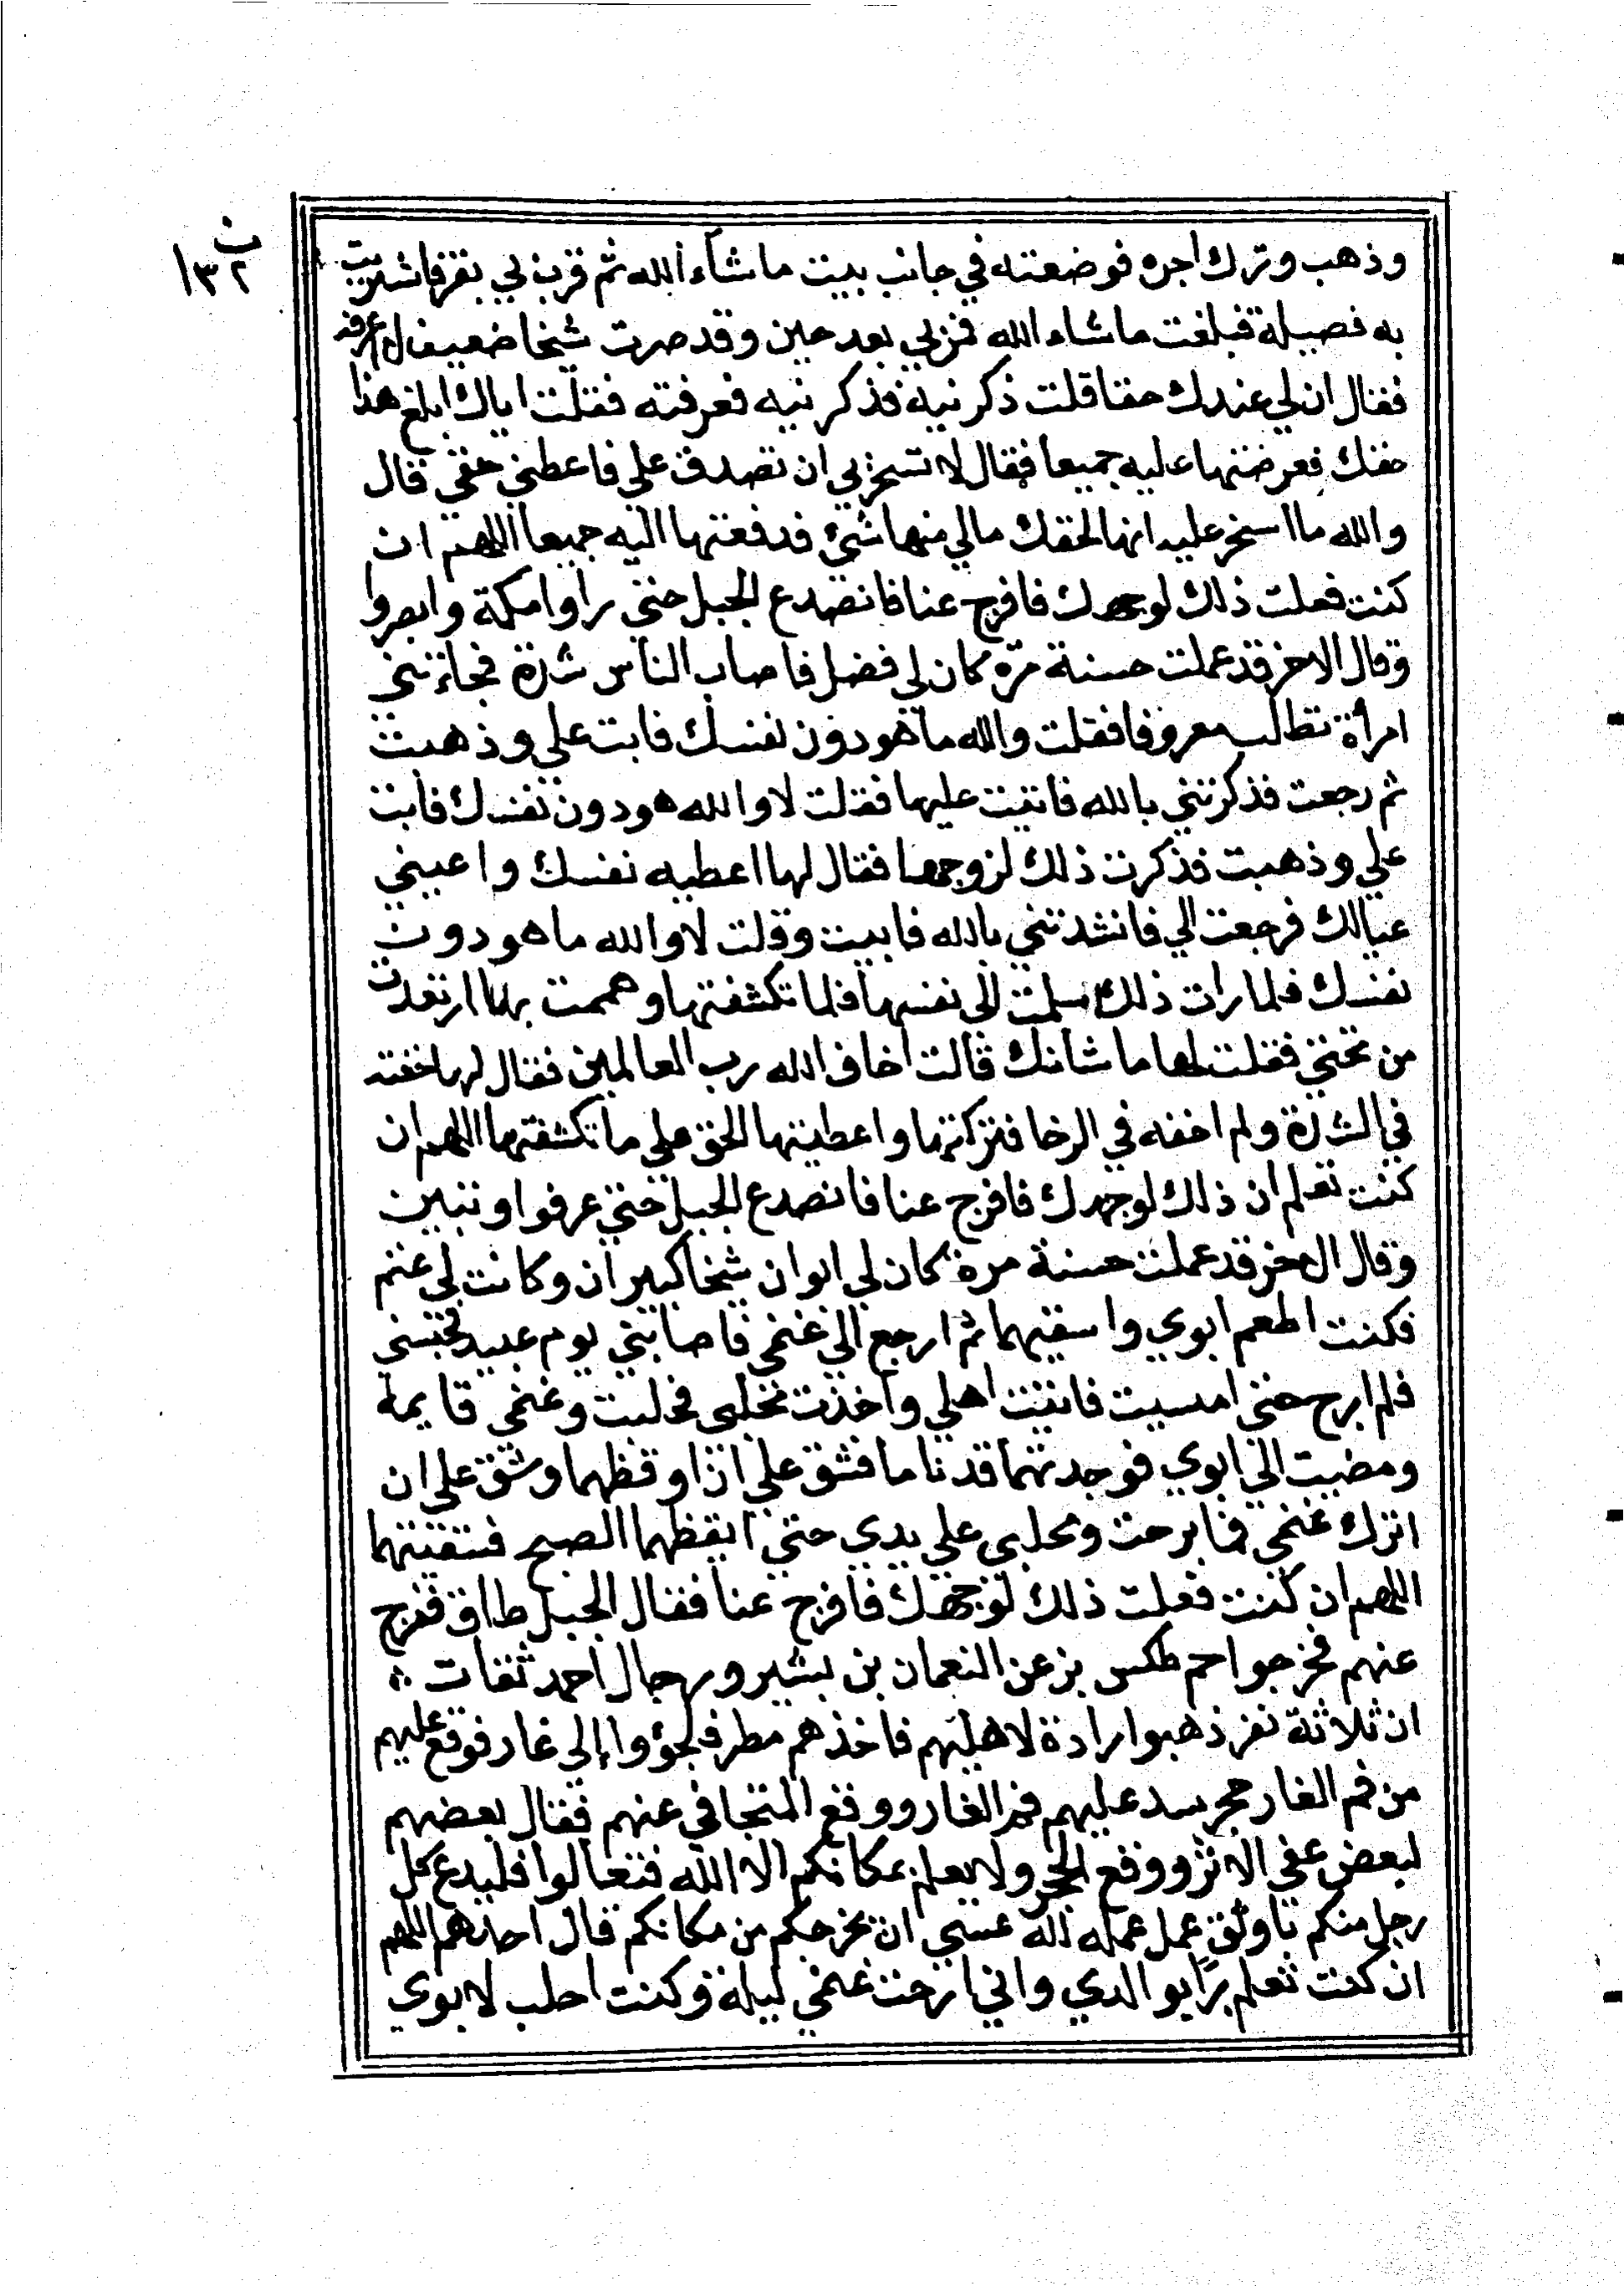 ن
١٣٢
وذهب وترك اجره فوضعته في جانب بيت ماشاء الله ثم قرب لي بقر فاشتريت
به فصيلة فبلغت ماشاء الله فمر بي بعد حين وقد صرت شيخا ضعيفا لم اعرفه
فقال ان لي عندك حقا قلت ذكرنيه فذكرنيه فعرفته فقلت اياك ابلغ هذا
حقك فعرضتها عليه جميعا فقال لا تسخر بي ان تصدق علي فاعطني حقي قال
والله ما اسخر عليه انها لحقك مالي منها شئ فدفعتها اليه جميعا اللهم ان
كنت فعلت ذلك لوجهك فافرج عنا فانصدع الجبل حتى راوا مكمة وابصروا
وقال الاخر قد عملت حسنة مرة كان لي فضل فاصاب الناس شدة فجاءتني
امرأة تطلب معروفا فقلت والله ما هو دون نفسك فابت علي وذهبت
ثم رجعت فذكرتني بالله فاتيت عليها فقلت لا والله هو دون نفسك فابت
علي وذهبت فذكرت ذلك لزوجها فقال لها اعطيه نفسك واعييني
عيالك فرجعت الي فانشدتني بالله فابيت وقلت لا والله ما هو دون
نفسك فلما رات ذلك اسلمت الى نفسها فلما تكشفتها وهممت بها ارتعدت
من تحتي فقلت لها ما شانك قالت اخاف الله رب العالمين فقال لها خفته
في الشدة ولم اخفه في الرخا فتركتها واعطيتها الحق على ما تكشفتها اللهم ان
كنت تعلم ان ذلك لوجهك فافرج عنا فانصدع الجبل حتى عرفوا وتبين
وقال الاخر قد عملت حسنة مرة كان لي ابوان شيخا كبيران وكانت لي غنم
فكنت اطعم ابوي واسقيهما ثم ارجع الي غنمي فاصابتني يوم عبيد فحبسني
فلم ابرح حتى امسيت فاتيت اهلي واخذت محلبى فحلبت وغنمي قايمه
ومضيت الي ابوي فوجدتهما قد ناما فشق علي ان اوقظهما وشق علي ان
اترك غنمي فما برحت ومحلبى علي يدي حتى ايقظهما الصبح فسقيتهما
اللهم ان كنت فعلت ذلك لوجهك فافرج عنا فقال الجبل طاق ففرج
عنهم فخرجوا حم طكس بز عن النعمان بن بشير ورجال احمد ثقات
ان ثلاثة نفر ذهبوا رادة لاهليهم فاخذهم مطر فلجؤوا إلى غار فوقع عليهم
من فم الغار حجر سد عليهم فم الغار ووقع المتجافي عنهم فقال بعضهم
لبعض عفي الاثر ووقع الحجر ولا يعلم بمكانكم الا الله فتعالوا فليدع كل
رجل منكم باوثق عمل عمله لله عسى ان يخرجكم من مكانكم قال احدهم اللهم
ان كنت تعلم برا بوالدي واني ارحت غنمي ليلة وكنت احلب لابوي